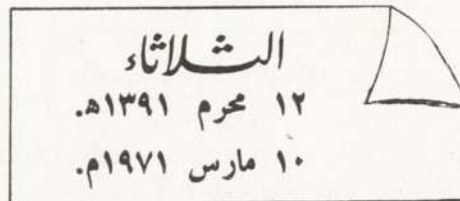 الثلاثاء
١٢ محرم ١٣٩١ه.
١٠ مارس ١٩٧١م.